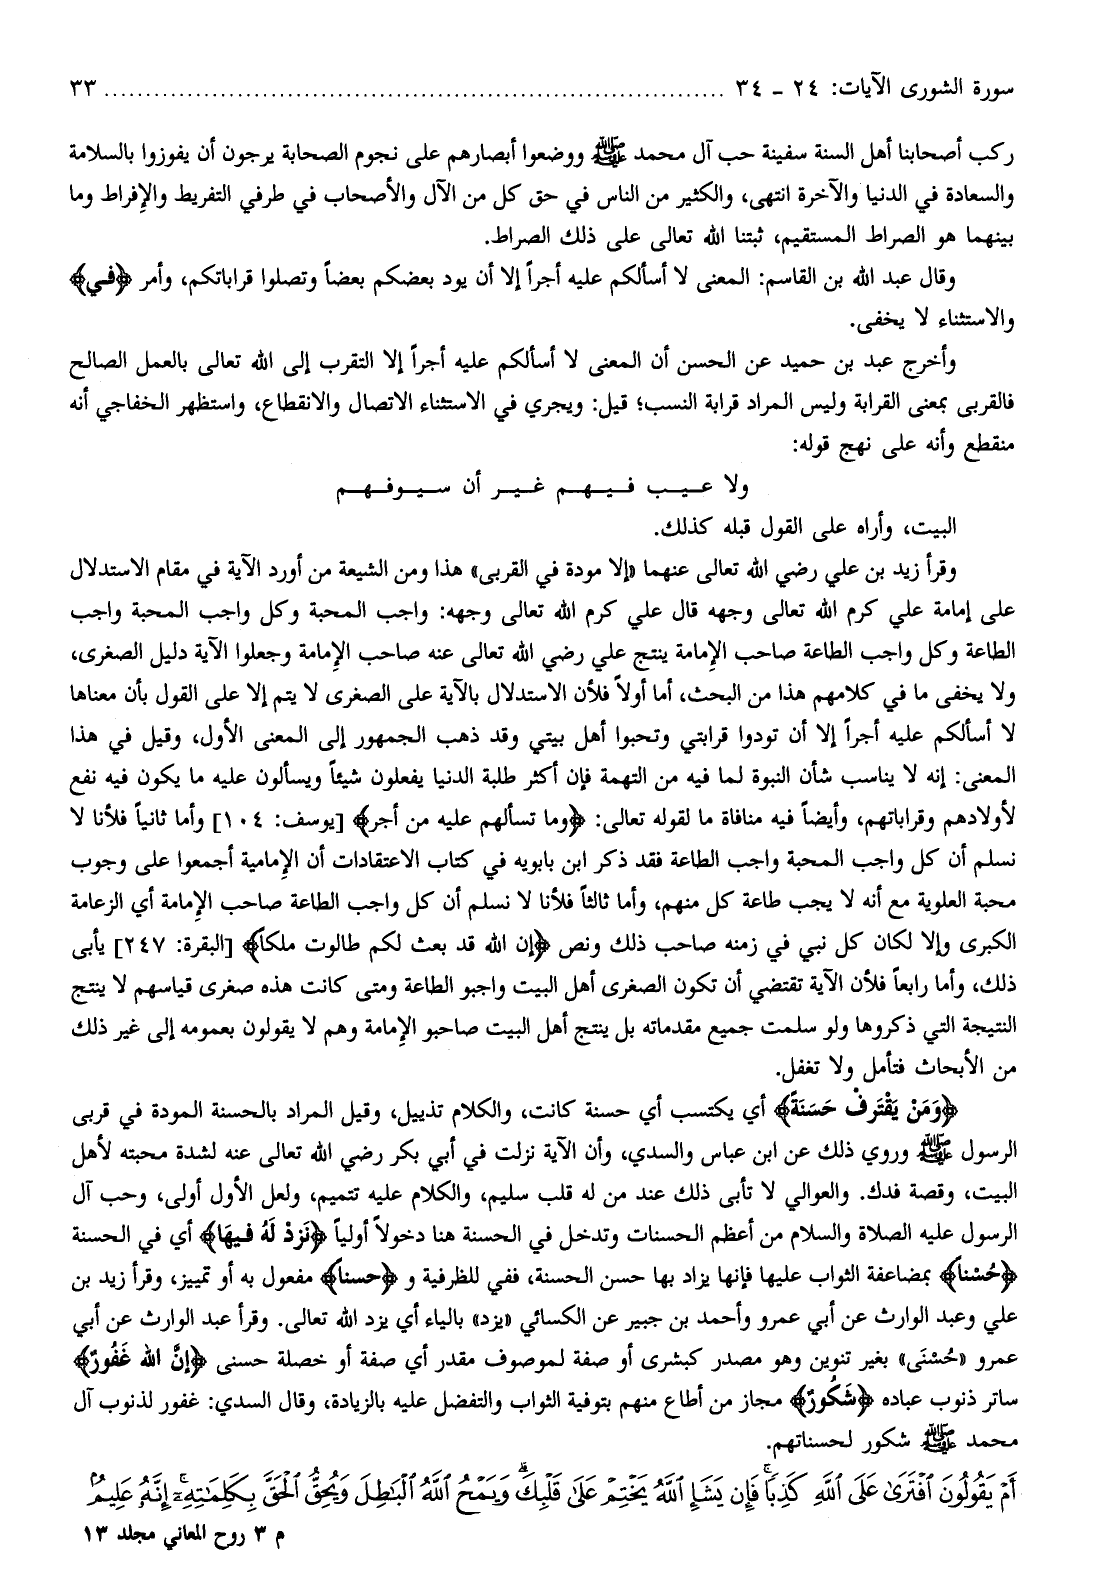 سورة الشورى الآيات: ٢٤ - ٣٤ ........................................................................ ٣٣
ركب أصحابنا أهل السنة سفينة حب آل محمد ﷺ ووضعوا أبصارهم على نجوم الصحابة يرجون أن يفوزوا بالسلامة
والسعادة في الدنيا والآخرة انتهى، والكثير من الناس في حق كل من الآل والأصحاب في طرفي التفريط والإفراط وما
بينهما هو الصراط المستقيم، ثبتنا الله تعالى على ذلك الصراط.
وقال عبد الله بن القاسم: المعنى لا أسألكم عليه أجراً إلا أن يود بعضكم بعضاً وتصلوا قراباتكم، وأمر ﴿في﴾
والاستثناء لا يخفى.
وأخرج عبد بن حميد عن الحسن أن المعنى لا أسألكم عليه أجراً إلا التقرب إلى الله تعالى بالعمل الصالح
فالقربى بمعنى القرابة وليس المراد قرابة النسب؛ قيل: ويجري في الاستثناء الاتصال والانقطاع، واستظهر الخفاجي أنه
منقطع وأنه على نهج قوله:
ولا عيب فيهم غير أن سيوفهم
البيت، وأراه على القول قبله كذلك.
وقرأ زيد بن علي رضي الله تعالى عنهما «إلا مودة في القربى» هذا ومن الشيعة من أورد الآية في مقام الاستدلال
على إمامة علي كرم الله تعالى وجهه قال علي كرم الله تعالى وجهه: واجب المحبة وكل واجب المحبة واجب
الطاعة وكل واجب الطاعة صاحب الإمامة ينتج علي رضي الله تعالى عنه صاحب الإمامة وجعلوا الآية دليل الصغرى،
ولا يخفى ما في كلامهم هذا من البحث، أما أولاً فلأن الاستدلال بالآية على الصغرى لا يتم إلا على القول بأن معناها
لا أسألكم عليه أجراً إلا أن تودوا قرابتي وتحبوا أهل بيتي وقد ذهب الجمهور إلى المعنى الأول، وقيل في هذا
المعنى: إنه لا يناسب شأن النبوة لما فيه من التهمة فإن أكثر طلبة الدنيا يفعلون شيئاً ويسألون عليه ما يكون فيه نفع
لأولادهم وقراباتهم، وأيضاً فيه منافاة ما لقوله تعالى: ﴿وما تسألهم عليه من أجر﴾ [يوسف: ١٠٤] وأما ثانياً فلأنا لا
نسلم أن كل واجب المحبة واجب الطاعة فقد ذكر ابن بابويه في كتاب الاعتقادات أن الإمامية أجمعوا على وجوب
محبة العلوية مع أنه لا يجب طاعة كل منهم، وأما ثالثاً فلأنا لا نسلم أن كل واجب الطاعة صاحب الإمامة أي الزعامة
الكبرى وإلا لكان كل نبي في زمنه صاحب ذلك ونص ﴿إن الله قد بعث لكم طالوت ملكاً﴾ [البقرة: ٢٤٧] يأبى
ذلك، وأما رابعاً فلأن الآية تقتضي أن تكون الصغرى أهل البيت واجبو الطاعة ومتى كانت هذه صغرى قياسهم لا ينتج
النتيجة التي ذكروها ولو سلمت جميع مقدماته بل ينتج أهل البيت صاحبو الإمامة وهم لا يقولون بعمومه إلى غير ذلك
من الأبحاث فتأمل ولا تغفل.
﴿وَمَنْ يَقْتَرِفْ حَسَنَةً﴾ أي يكتسب أي حسنة كانت، والكلام تذييل، وقيل المراد بالحسنة المودة في قربى
الرسول ﷺ وروي ذلك عن ابن عباس والسدي، وأن الآية نزلت في أبي بكر رضي الله تعالى عنه لشدة محبته لأهل
البيت، وقصة فدك. والعوالي لا تأبى ذلك عند من له قلب سليم، والكلام عليه تتميم، ولعل الأول أولى، وحب آل
الرسول عليه الصلاة والسلام من أعظم الحسنات وتدخل في الحسنة هنا دخولاً أولياً ﴿نَزِدْ لَهُ فِيهَا﴾ أي في الحسنة
﴿حُسْناً﴾ بمضاعفة الثواب عليها فإنها يزاد بها حسن الحسنة، ففي للظرفية و ﴿حسنا﴾ مفعول به أو تمييز، وقرأ زيد بن
علي وعبد الوارث عن أبي عمرو وأحمد بن جبير عن الكسائي «يزد» بالياء أي يزد الله تعالى. وقرأ عبد الوارث عن أبي
عمرو «حُسْنَى» بغير تنوين وهو مصدر كبشرى أو صفة لموصوف مقدر أي صفة أو خصلة حسنى ﴿إِنَّ الله غَفُورٌ﴾
ساتر ذنوب عباده ﴿شَكُورٌ﴾ مجاز من أطاع منهم بتوفية الثواب والتفضل عليه بالزيادة، وقال السدي: غفور لذنوب آل
محمد ﷺ شكور لحسناتهم.
أَمْ يَقُولُونَ ٱفْتَرَىٰ عَلَى ٱللَّهِ كَذِبًا ۖ فَإِن يَشَإِ ٱللَّهُ يَخْتِمْ عَلَىٰ قَلْبِكَ ۗ وَيَمْحُ ٱللَّهُ ٱلْبَاطِلَ وَيُحِقُّ ٱلْحَقَّ بِكَلِمَاتِهِۦٓ ۚ إِنَّهُۥ عَلِيمٌۢ
م ٣ روح المعاني مجلد ١٣